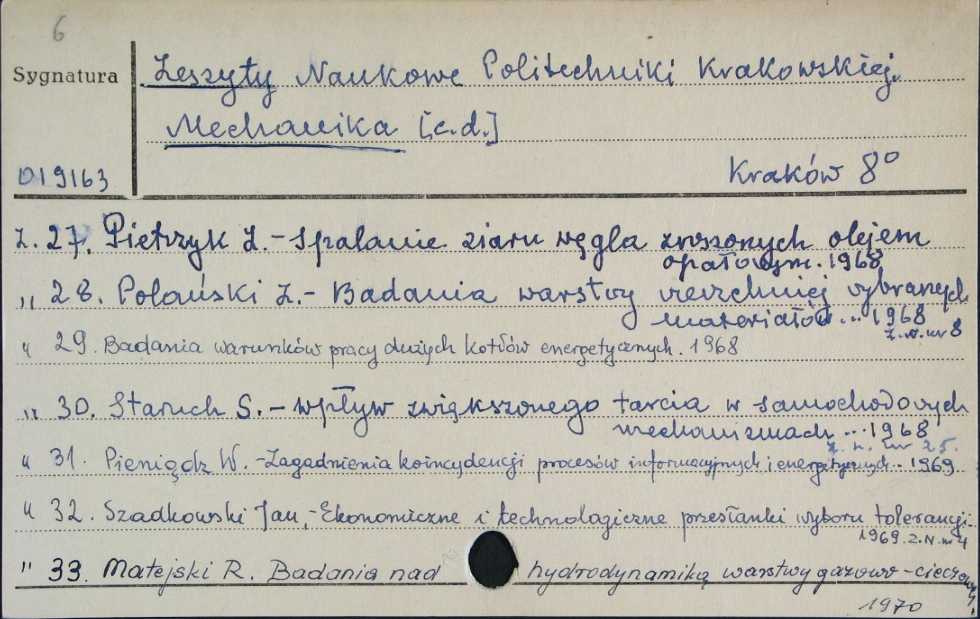 6
Sygnatura
Zeszyty Naukowe Politechniki Krakowskiej.
Mechanika [c.d.]
019163
Kraków 8°
Z. 27. Pietrzyk Z. - Spalanie ziarn węgla zroszonych olejem
opałowym. 1968
" 28. Polański Z. - Badania warstwy wierzchniej wybranych
materiałów... 1968
Z. N. nr 8
" 29. Badania warunków pracy dużych kotłów energetycznych. 1968
" 30. Staruch S. - wpływ zwiększonego tarcia w samochodowych
mechanizmach ... 1968
Z. N. nr 25.
" 31. Pieniądz W. - Zagadnienia koincydencji procesów informacyjnych i energetycznych.. 1969
" 32. Szadkowski Jan, - Ekonomiczne i technologiczne przesłanki wyboru tolerancji.
1969. Z. N. nr 4
" 33. Matejski R. Badania nad hydrodynamiką warstwy gazowo-cieczowej,
1970